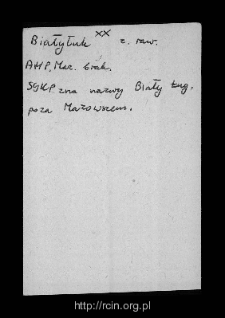 xx
Białyłuk z. raw.
AHP, Maz. brak.
SGKP zna nazwy Biały Ług,
poza Mazowszem.
http://rcin.org.pl